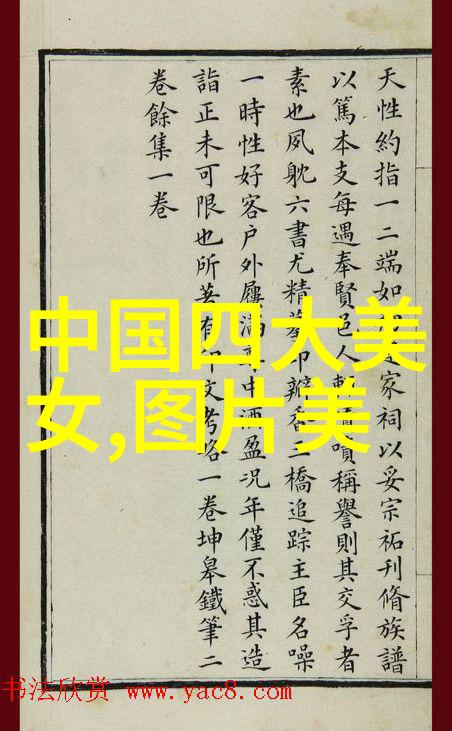 天性約指一二端如家祠以妥宗祏刊脩族譜
以篤本支每遇奉賢邑人輒嘖嘖稱譽則其交孚者
素也夙躭六書尤精摹印瓣香三橋追踪主臣名噪
一時性好客戶外屨滿尊中酒盈況年僅不惑其造
詣正未可限也所著有印文考略一卷坤皋鐵筆二
卷餘集一卷
中国四大美
女,图片美
书法欣赏 www.yac8.com